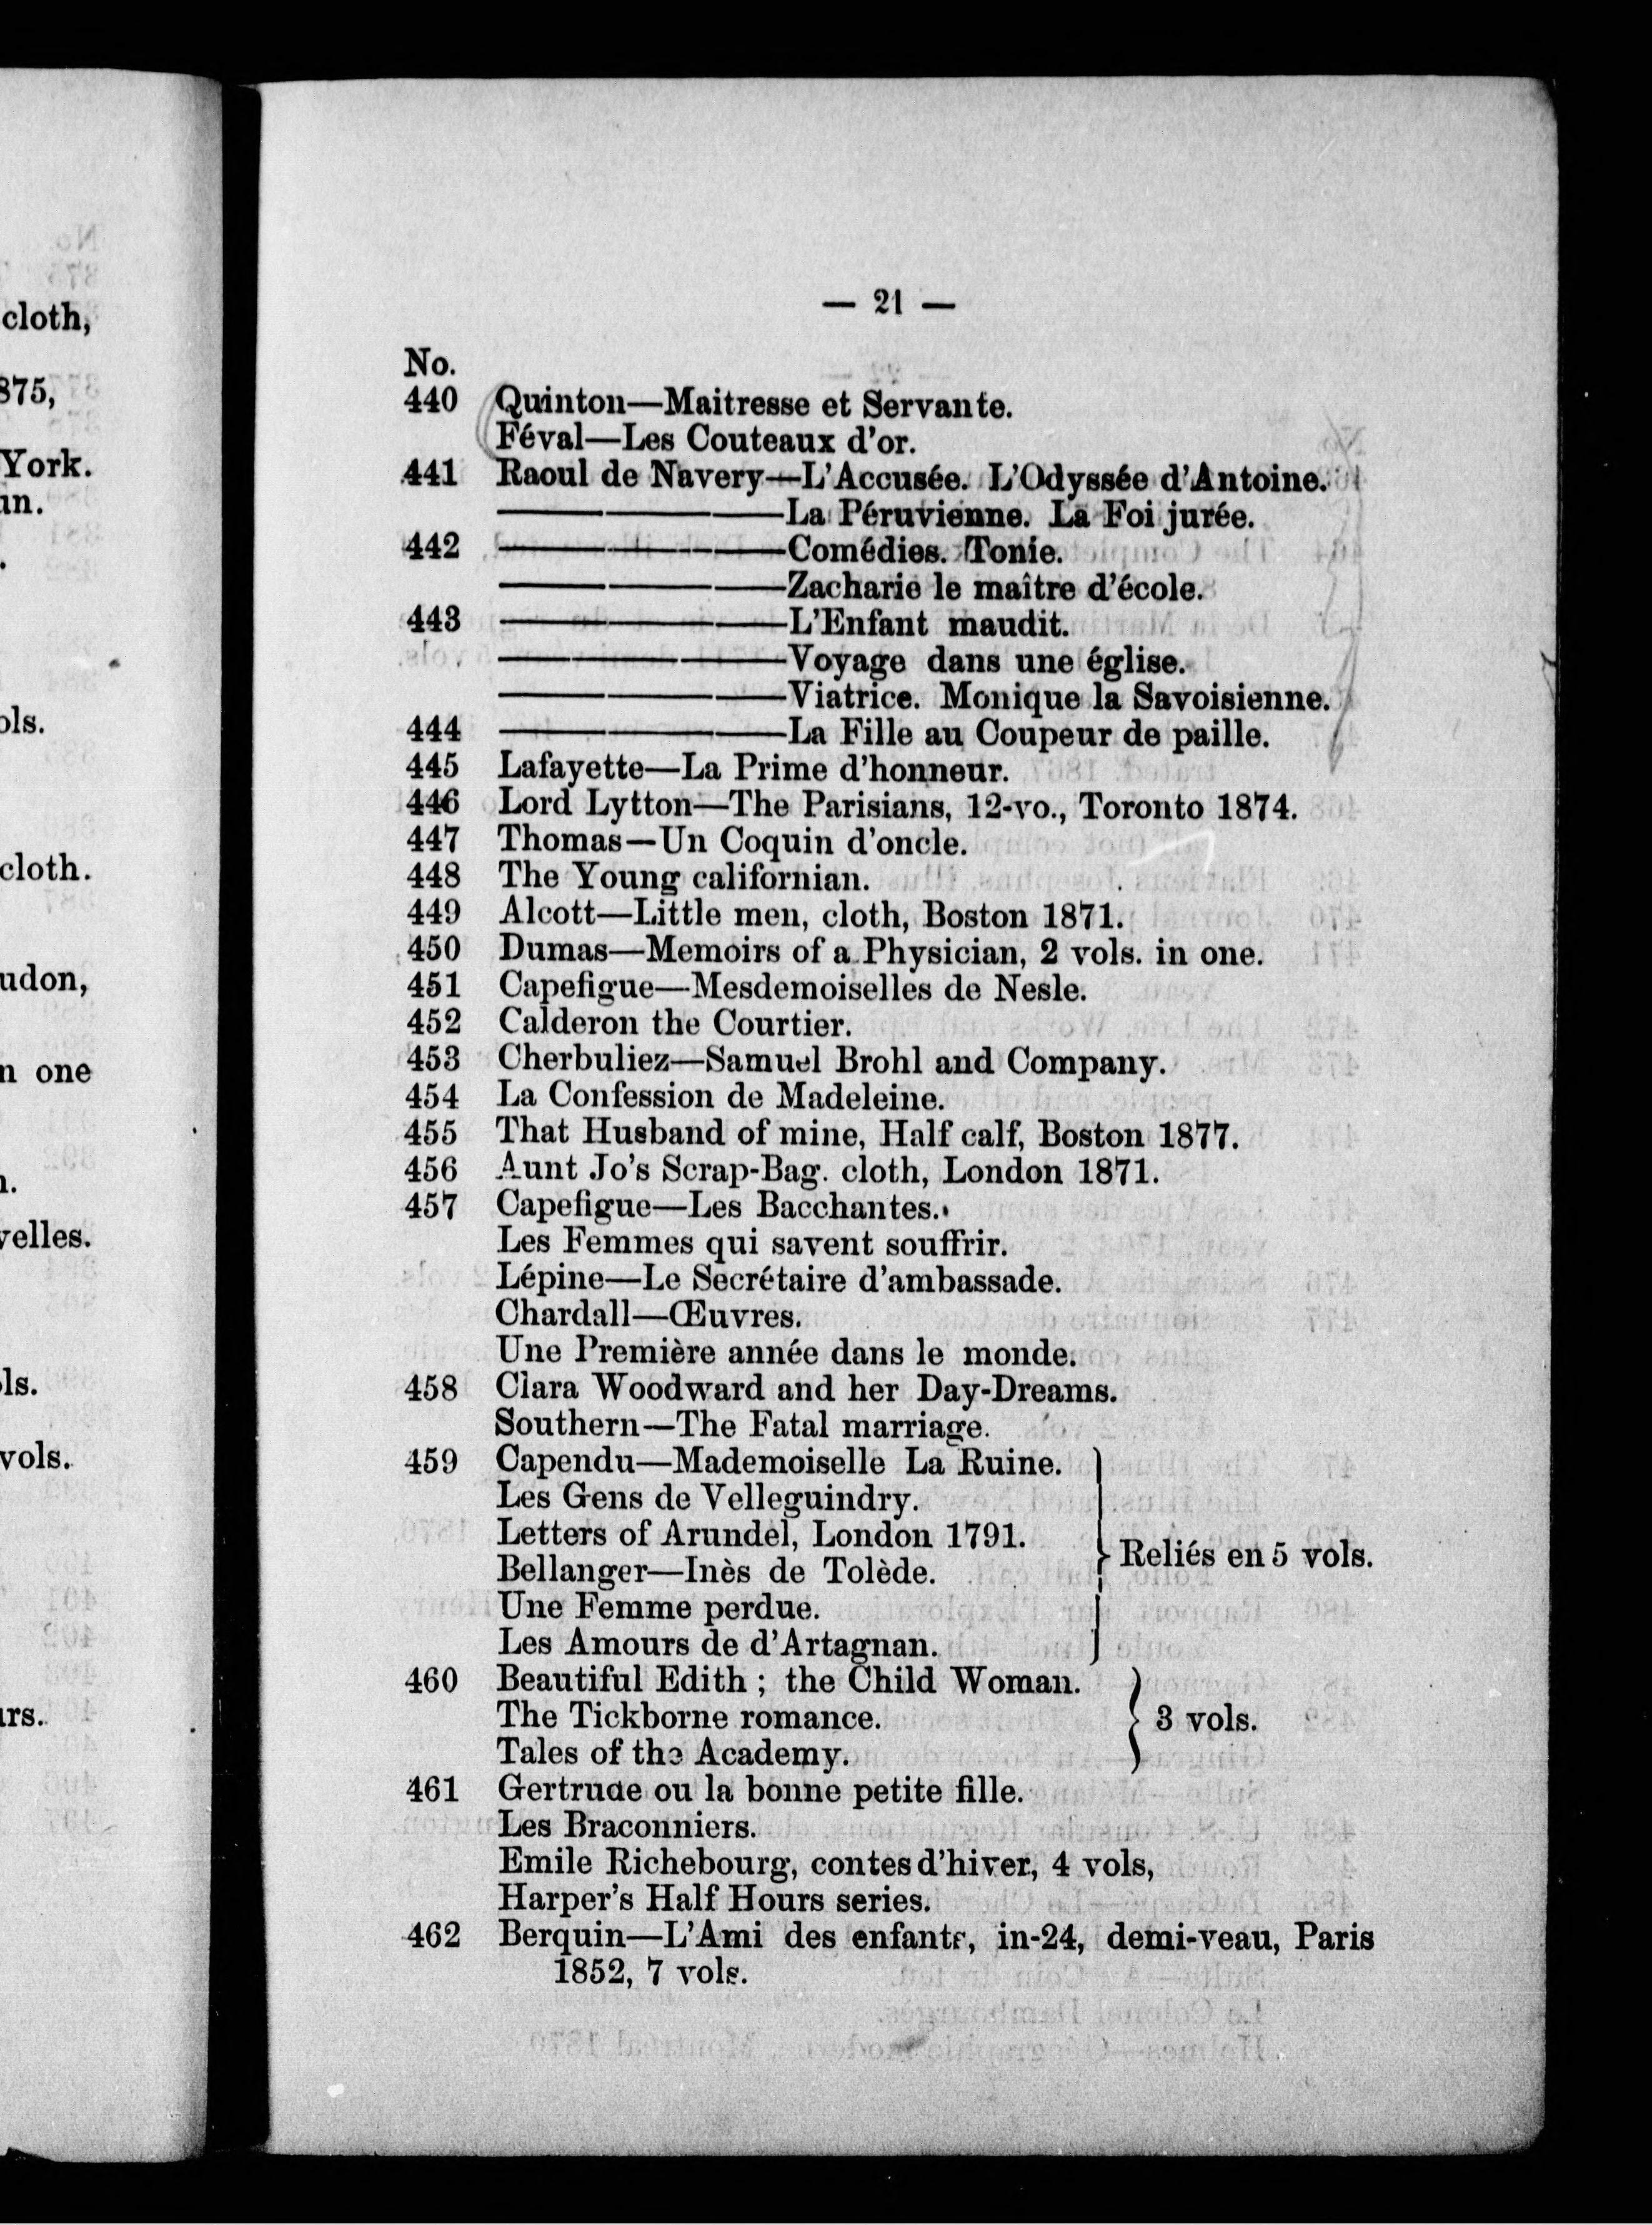 cloth,
875,
York.
un.
ols.
cloth.
udon,
n one
n.
velles.
ls.
vols.
urs.
— 21 —
No.
440 Quinton—Maitresse et Servante.
Féval—Les Couteaux d'or.
441 Raoul de Navery—L'Accusée. L'Odyssée d'Antoine.
————La Péruvienne. La Foi jurée.
442 ————Comédies. Tonie.
————Zacharie le maître d'école.
443 ————L'Enfant maudit.
————Voyage dans une église.
————Viatrice. Monique la Savoisienne.
444 ————La Fille au Coupeur de paille.
445 Lafayette—La Prime d'honneur.
446 Lord Lytton—The Parisians, 12-vo., Toronto 1874.
447 Thomas—Un Coquin d'oncle.
448 The Young californian.
449 Alcott—Little men, cloth, Boston 1871.
450 Dumas—Memoirs of a Physician, 2 vols. in one.
451 Capefigue—Mesdemoiselles de Nesle.
452 Calderon the Courtier.
453 Cherbuliez—Samuel Brohl and Company.
454 La Confession de Madeleine.
455 That Husband of mine, Half calf, Boston 1877.
456 Aunt Jo's Scrap-Bag. cloth, London 1871.
457 Capefigue—Les Bacchantes.
Les Femmes qui savent souffrir.
Lépine—Le Secrétaire d'ambassade.
Chardall—Œuvres.
Une Première année dans le monde.
458 Clara Woodward and her Day-Dreams.
Southern—The Fatal marriage.
459 Capendu—Mademoiselle La Ruine.
Les Gens de Velleguindry.
Letters of Arundel, London 1791.
Bellanger—Inès de Tolède.
Une Femme perdue.
Les Amours de d'Artagnan.
Reliés en 5 vols.
460 Beautiful Edith ; the Child Woman.
The Tickborne romance.
Tales of the Academy.
3 vols.
461 Gertrude ou la bonne petite fille.
Les Braconniers.
Emile Richebourg, contes d'hiver, 4 vols,
Harper's Half Hours series.
462 Berquin—L'Ami des enfants, in-24, demi-veau, Paris
1852, 7 vols.